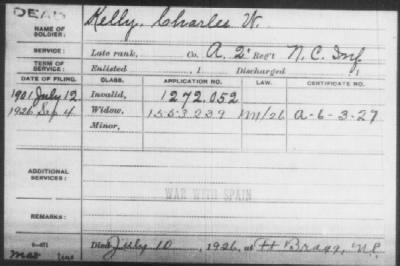 DEAD
NAME OF SOLDIER: Kelly, Charles W.
SERVICE: Late rank, Co. A. 2' Reg't N.C. Inf
TERM OF SERVICE: Enlisted , 1 Discharged , 1
DATE OF FILING. CLASS. APPLICATION NO. LAW. CERTIFICATE NO.
1901 July 12 Invalid, 1272.052
1926 Sep 4 Widow, 1553239 A-6-3-27
Minor,
ADDITIONAL SERVICES:
WAR WITH SPAIN
REMARKS:
Died July 10, 1926, at Ft Bragg, N.C.